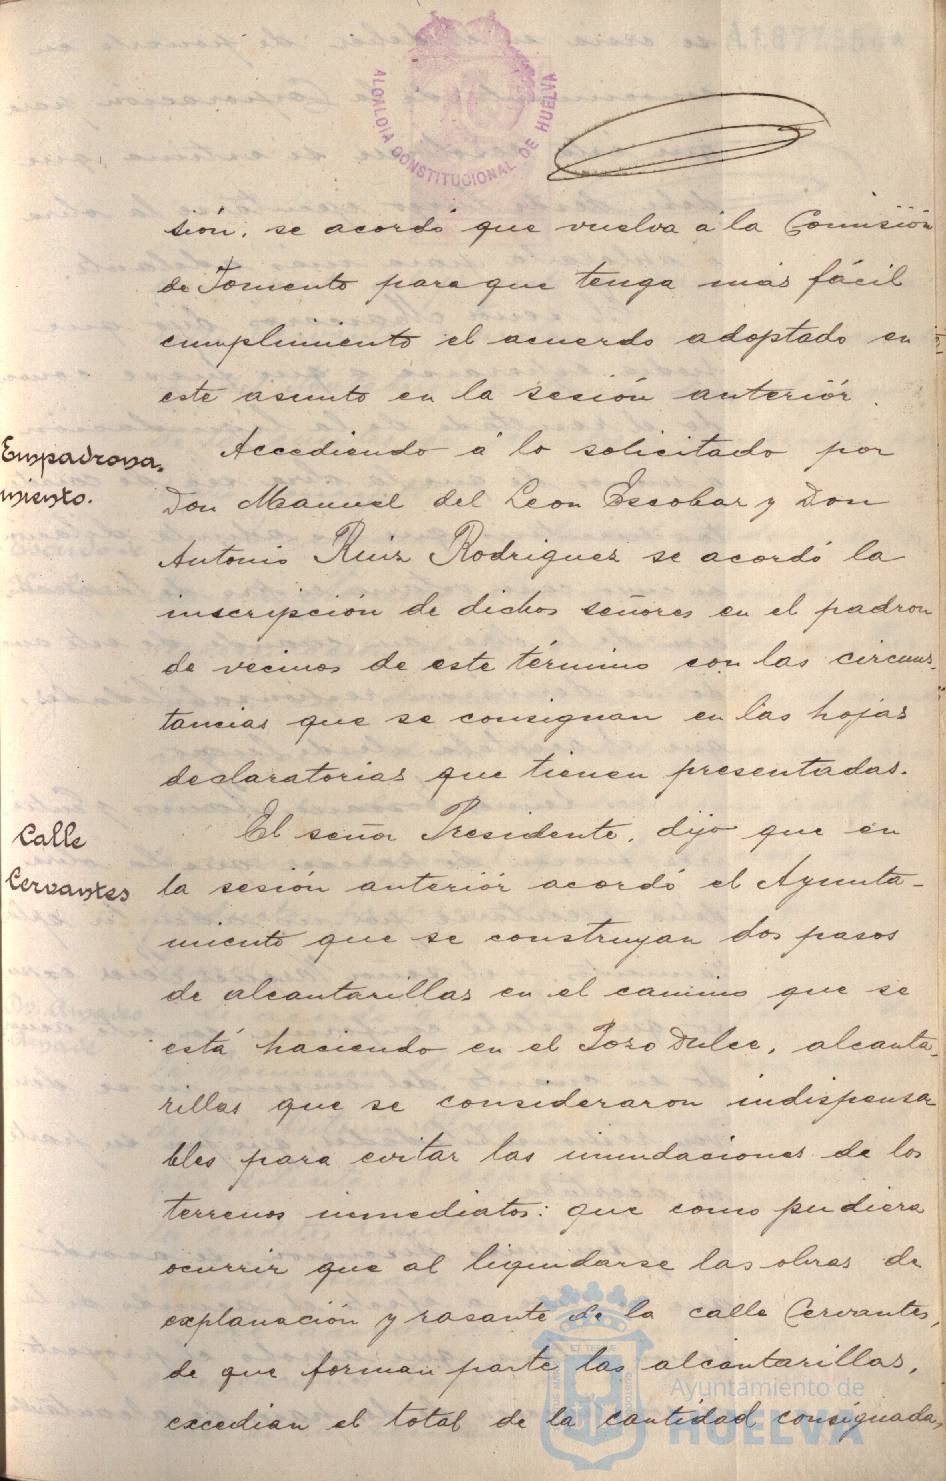 ALCALDIA CONSTITUCIONAL DE HUELVA
sión, se acordó que vuelva á la Comisión
de Fomento para que tenga más fácil
cumplimiento el acuerdo adoptado en
este asunto en la sesión anteriór.
Empadrona-
miento.
Accediendo á lo solicitado por
Don Manuel del Leon Escobar y Don
Antonio Ruiz Rodriguez se acordó la
inscripción de dichos señores en el padron
de vecinos de este término con las circuns-
tancias que se consignan en las hojas
declaratorias que tienen presentadas.
Calle
Cervantes
El señor Presidente, dijo que en
la sesión anteriór acordó el Ayunta-
miento que se construyan dos pasos
de alcantarillas en el camino que se
está haciendo en el Pozo Dulce, alcanta-
rillas que se consideraron indispensa
bles para evitar las inundaciones de los
terrenos inmediatos: que como pudiera
ocurrir que al liquidarse las obras de
explanación y rasante de la calle Cervantes,
de que forman parte las alcantarillas,
excedian el total de la cantidad consignada,
Ayuntamiento de
HUELVA